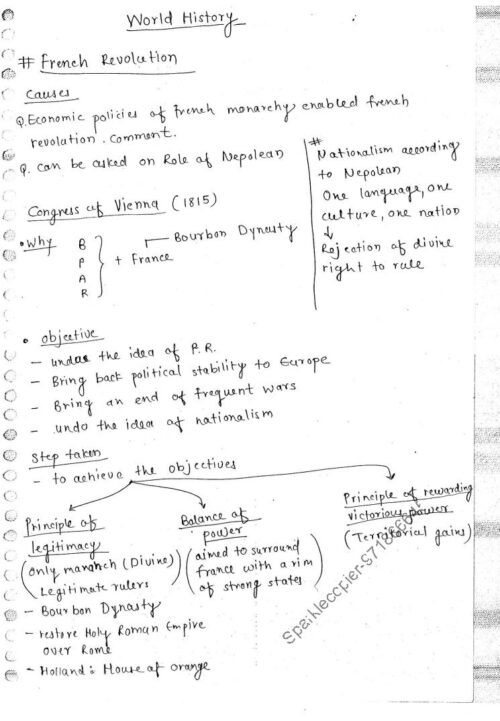 World History
# French Revolution
Causes
Q. Economic policies of french monarchy enabled french
revolution. comment.
Q. can be asked on Role of Nepolean
#
Nationalism according
to Nepolean
One language, one
culture, one nation
↓
Rejection of divine
right to rule
Congress of Vienna (1815)
• Why B
P
A
R
+ France
Bourbon Dynesty
• objective
- undoe the idea of P.R.
- Bring back political stability to Europe
- Bring an end of frequent wars
- undo the idea of nationalism
Step taken
- to achieve the objectives
Principle of
legitimacy
(only maranch (Divine)
Legitimate rulers)
- Bourbon Dynasty
- restore Holy Roman Empire
over Rome
- Holland : House of orange
Balance of
power
(aimed to surround
france with a rim
of strong states)
Principle of rewarding
victorious power
(Terratorial gains)